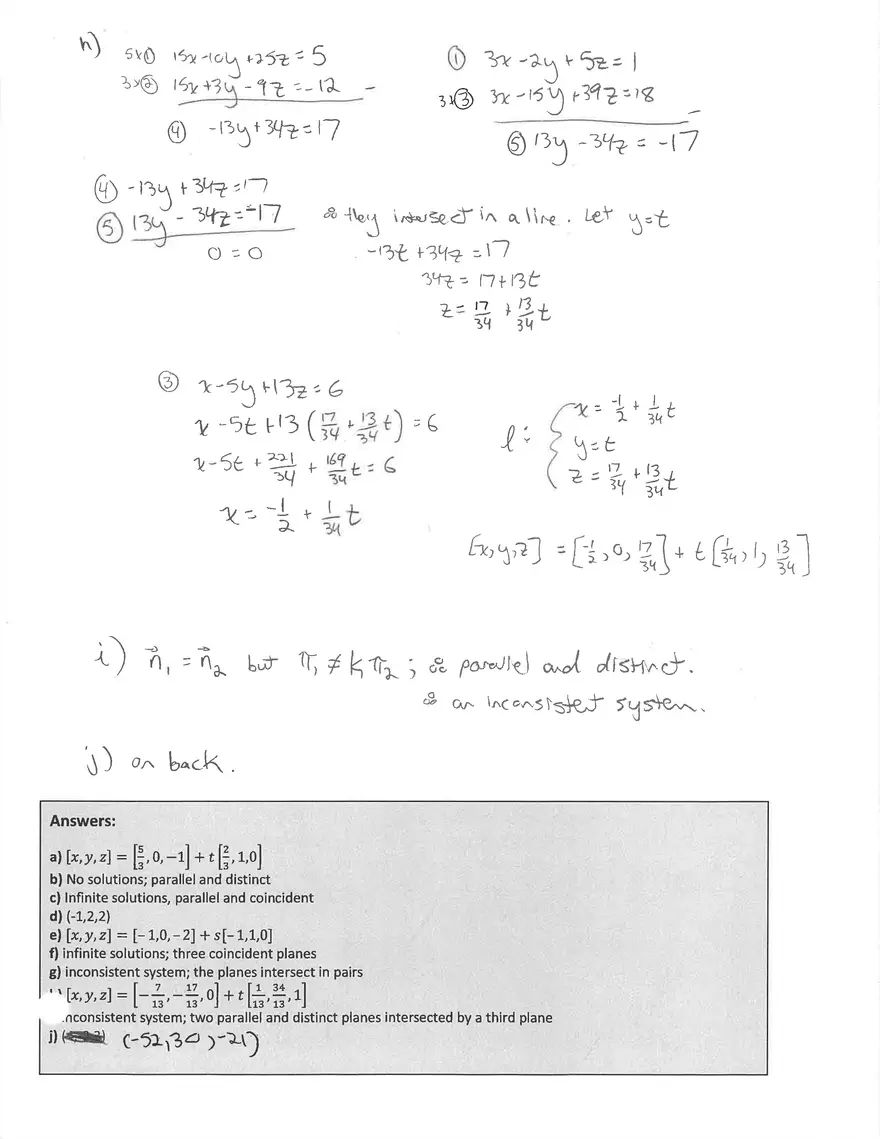 h)
5x① 15x-10y+25z=5
3x② 15x+3y-9z=-12 -
④ -13y+34z=17
① 3x-2y+5z=1
3x③ 3x-15y+39z=18 -
⑤ 13y-34z=-17
④ -13y+34z=17
⑤ 13y-34z=-17
0=0
∴ they intersect in a line. Let y=t
-13t+34z=17
34z=17+13t
z=17/34+13/34 t
③ x-5y+13z=6
x-5t+13(17/34+13/34 t)=6
x-5t+221/34+169/34 t=6
x=-1/2+1/34 t
l: { x=-1/2+1/34 t
y=t
z=17/34+13/34 t
[x,y,z]=[-1/2,0,17/34]+t[1/34,1,13/34]
i) n⃗₁=n⃗₂ but π₁≠kπ₂; ∴ parallel and distinct.
∴ an inconsistent system.
j) on back.
Answers:
a) [x,y,z] = [5/3,0,−1] + t[2/3,1,0]
b) No solutions; parallel and distinct
c) Infinite solutions, parallel and coincident
d) (-1,2,2)
e) [x,y,z] = [−1,0,−2] + s[−1,1,0]
f) infinite solutions; three coincident planes
g) inconsistent system; the planes intersect in pairs
[x,y,z] = [−7/13,−17/13,0] + t[1/13,34/13,1]
nconsistent system; two parallel and distinct planes intersected by a third plane
j) (-52,30,-21)